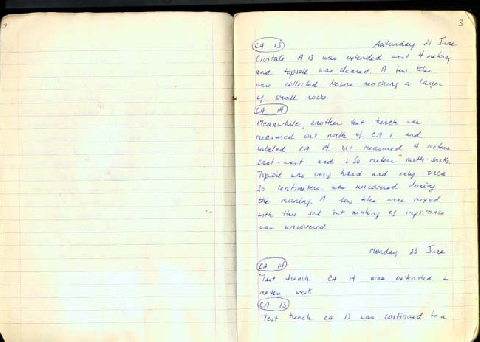 3
CA 13
Saturday 21 June
Civitate A 13 was extended west 4 meters
and topsoil was cleared. A few tiles
were collected before reaching a layer
of small rocks.
CA 14
Meanwhile, another test trench was
measured out north of CA and
labeled CA 14. It measured 4 meters
east-west and 1.50 meters north-south.
Topsoil was very hard and only
30 centimeters was uncovered during
the morning. A few tiles were mixed
with this soil but nothing of importance
was uncovered.
Monday 23 June
CA 14
Test trench CA 14 was extended
meter west
CA 13
Test trench CA 13 was continued to a